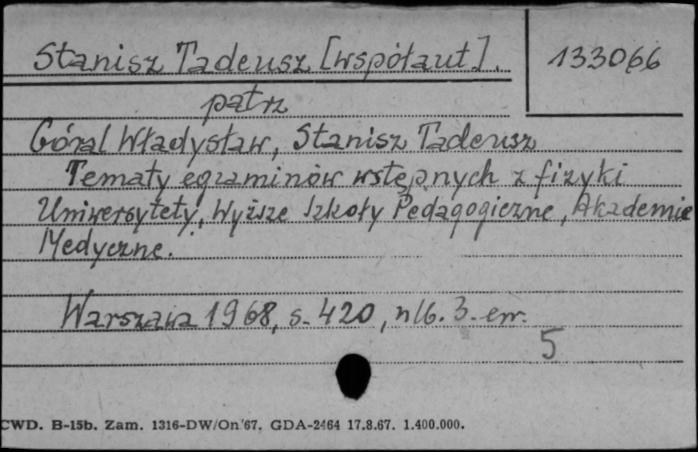 Stanisz Tadeusz [współaut].
133066
patrz
Góral Władysław, Stanisz Tadeusz
Tematy egzaminów wstępnych z fizyki
Uniwersytety, Wyższe Szkoły Pedagogiczne, Akademie
Medyczne.
Warszawa 1968, s. 420, nlb. 3. err.
5
CWD. B-15b. Zam. 1316-DW/On'67. GDA-2464 17.8.67. 1.400.000.